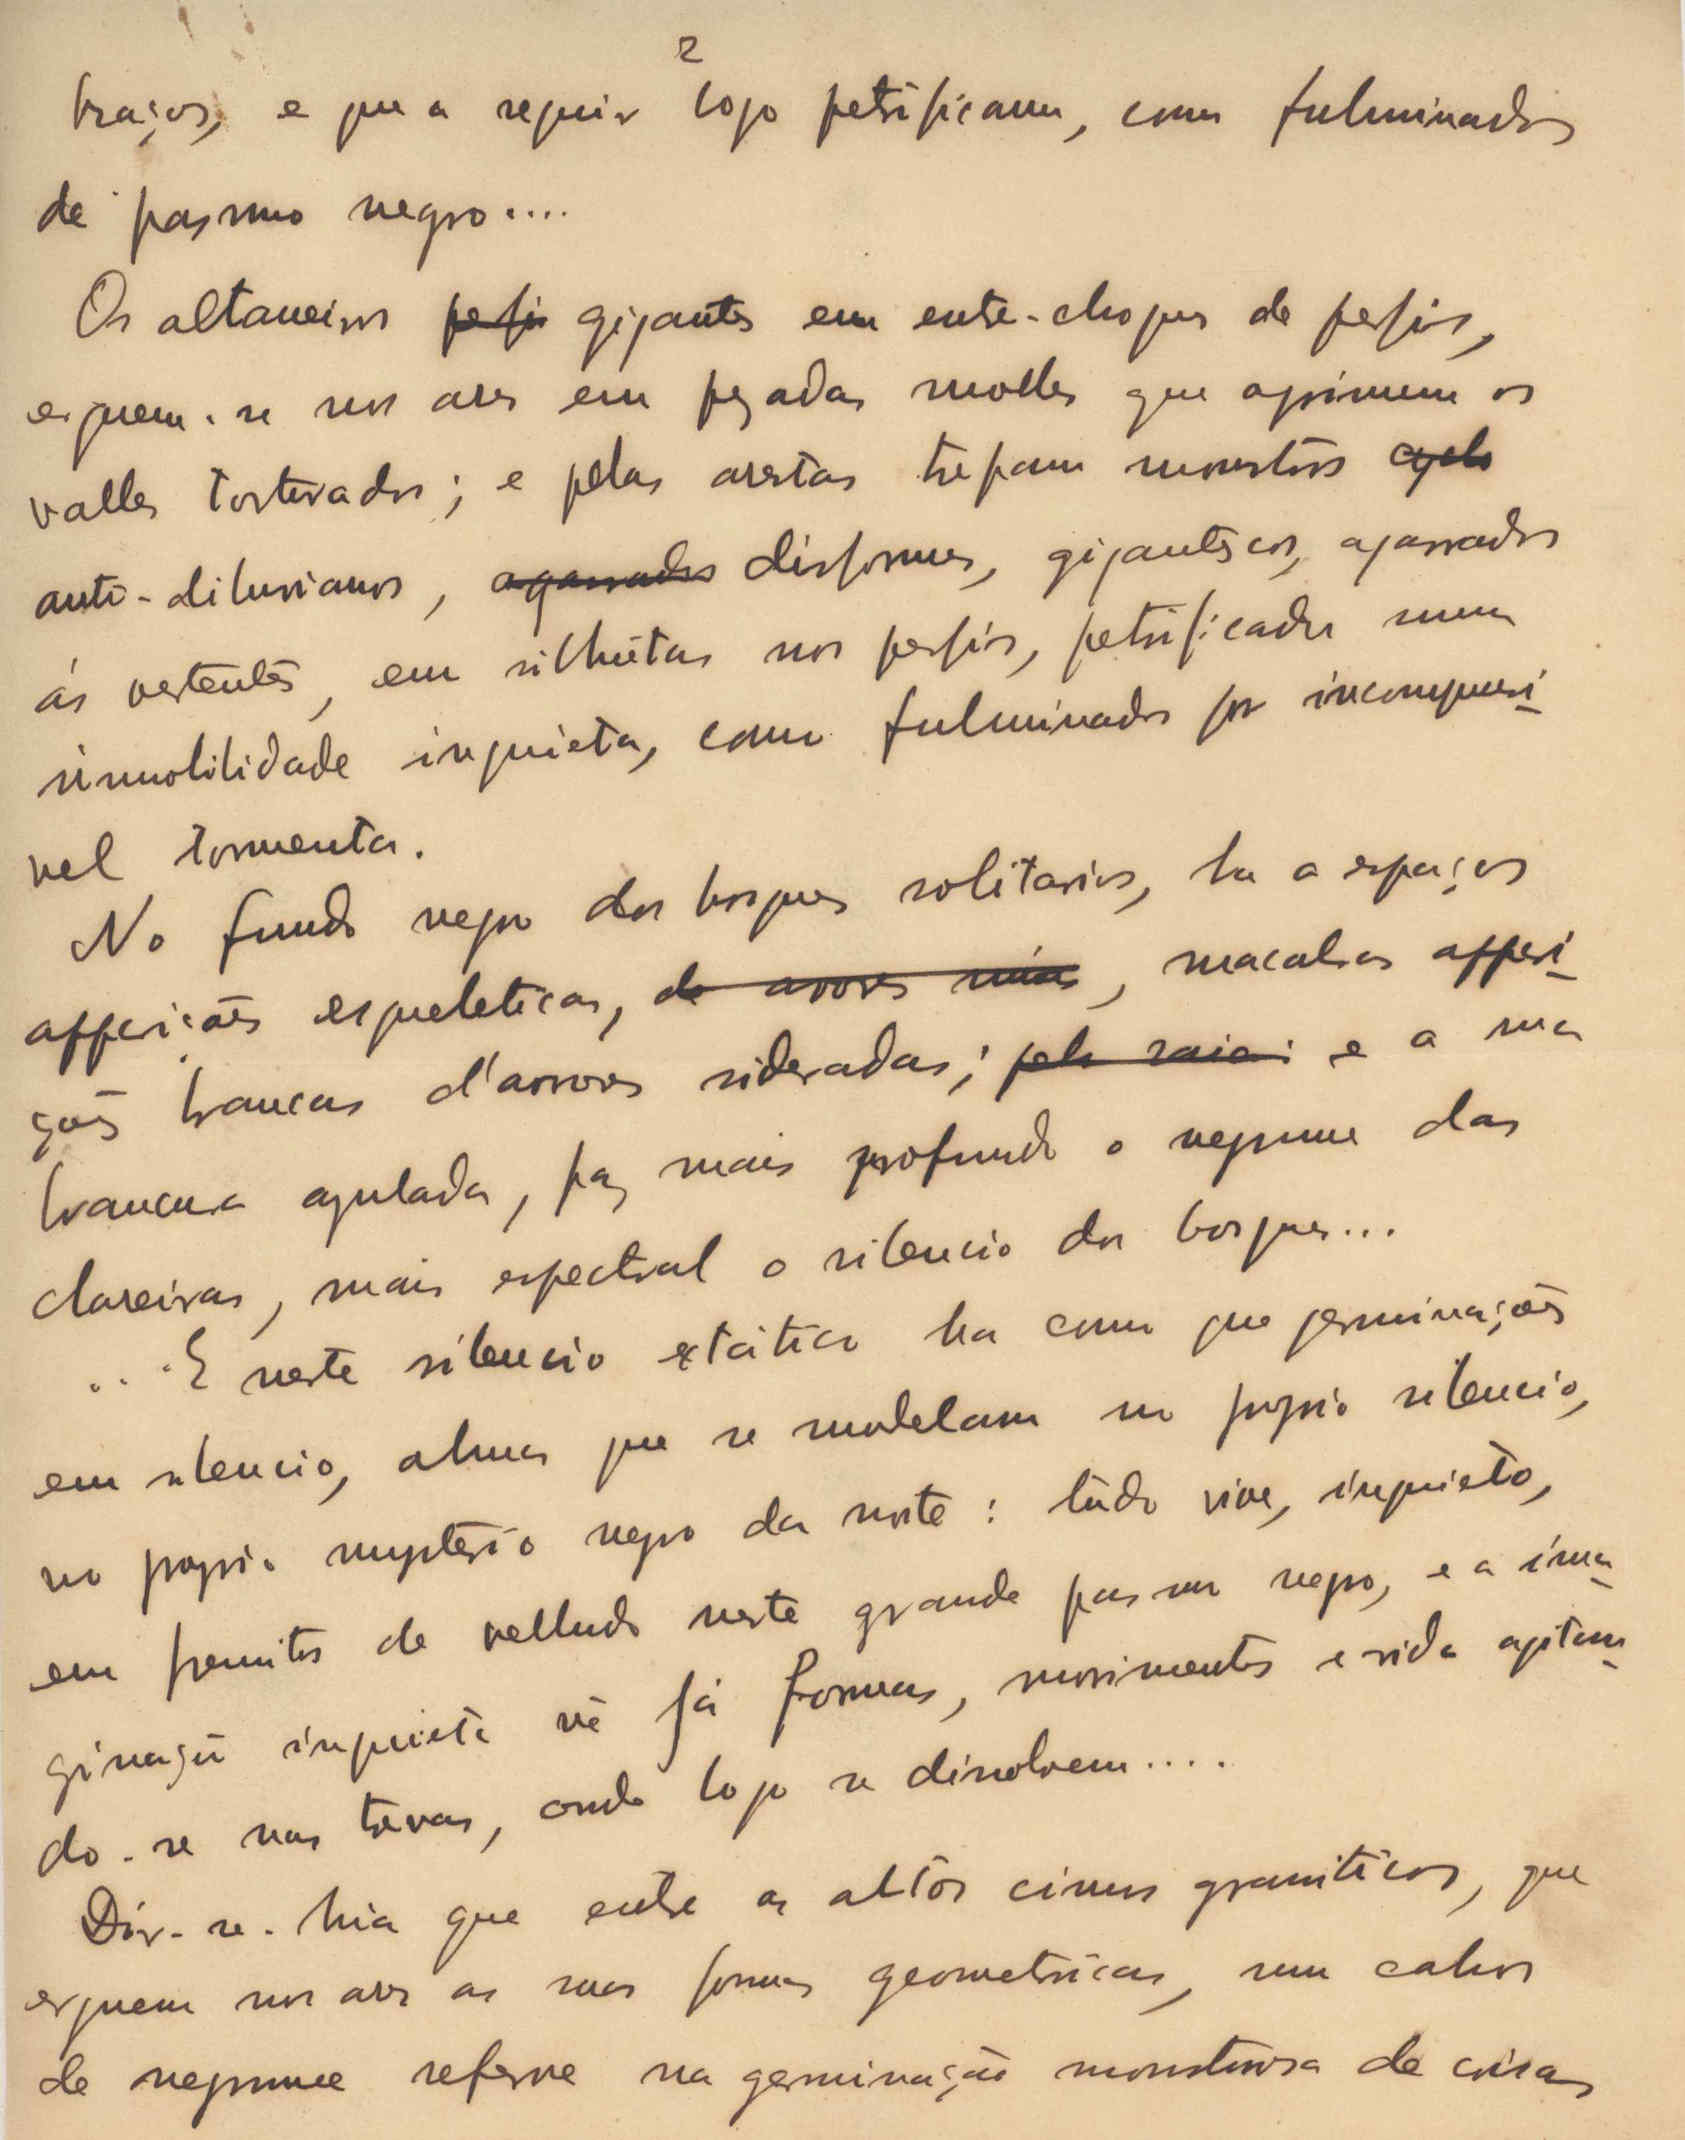 2
braços, e que a seguir logo petrificam, como fulminados
de pasmo negro....
Os altaneiros perfis gigantes em entre-choques de perfis,
erguem-se nos ares em pezadas molles que oprimem os
valles torturados; e pelas arestas trepam monstros cyclo
anti-diluvianos, agarrados disformes, gigantescos, agarrados
ás vertentes, em silhuêtas nos perfis, petrificados numa
immobilidade inquieta, como fulminados por incompreensi-
vel tormenta.
No fundo negro dos bosques solitarios, ha a espaços
apparições esqueleticas, de arvores núas, macabras appari-
ções brancas d'arvores sideradas; pelo raio: e a sua
brancura azulada, faz mais profundo o negrume das
clareiras, mais espectral o silencio dos bosques...
...E neste silencio extático ha como que germinações
em silencio, almas que se modelam no proprio silencio,
no proprio mysterio negro da noite: tudo vive, inquieto,
em fremitos de velludo neste grande pasmo negro, e a ima-
ginação inquieta vê já formas, movimentos e vida agitan-
do-se nas trevas, onde logo se dissolvem....
Dir-se-hia que entre os altos cimos graniticos, que
erguem nos ares as suas formas geometricas, um cahos
de negrume referve na germinação monstruosa de coisas